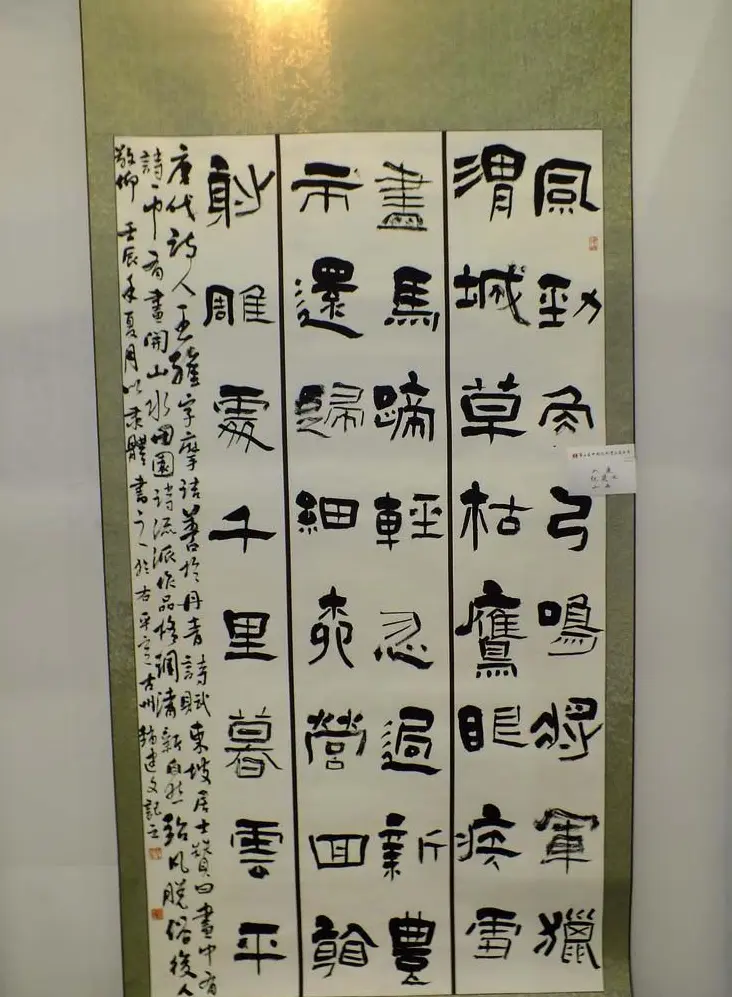 風勁角弓鳴將軍獵
渭城草枯鷹眼疾雪
盡馬蹄輕忽過新豐
市還歸細柳營回看
射雕處千里暮雲平
唐代詩人王維字摩詰善於丹青詩賦東坡居士贊曰畫中有
詩〻中有畫開山水田園詩流派作品格調清新自然風脫俗後人
敬仰 壬辰年夏月以隸體書之於古平定古州建文記之